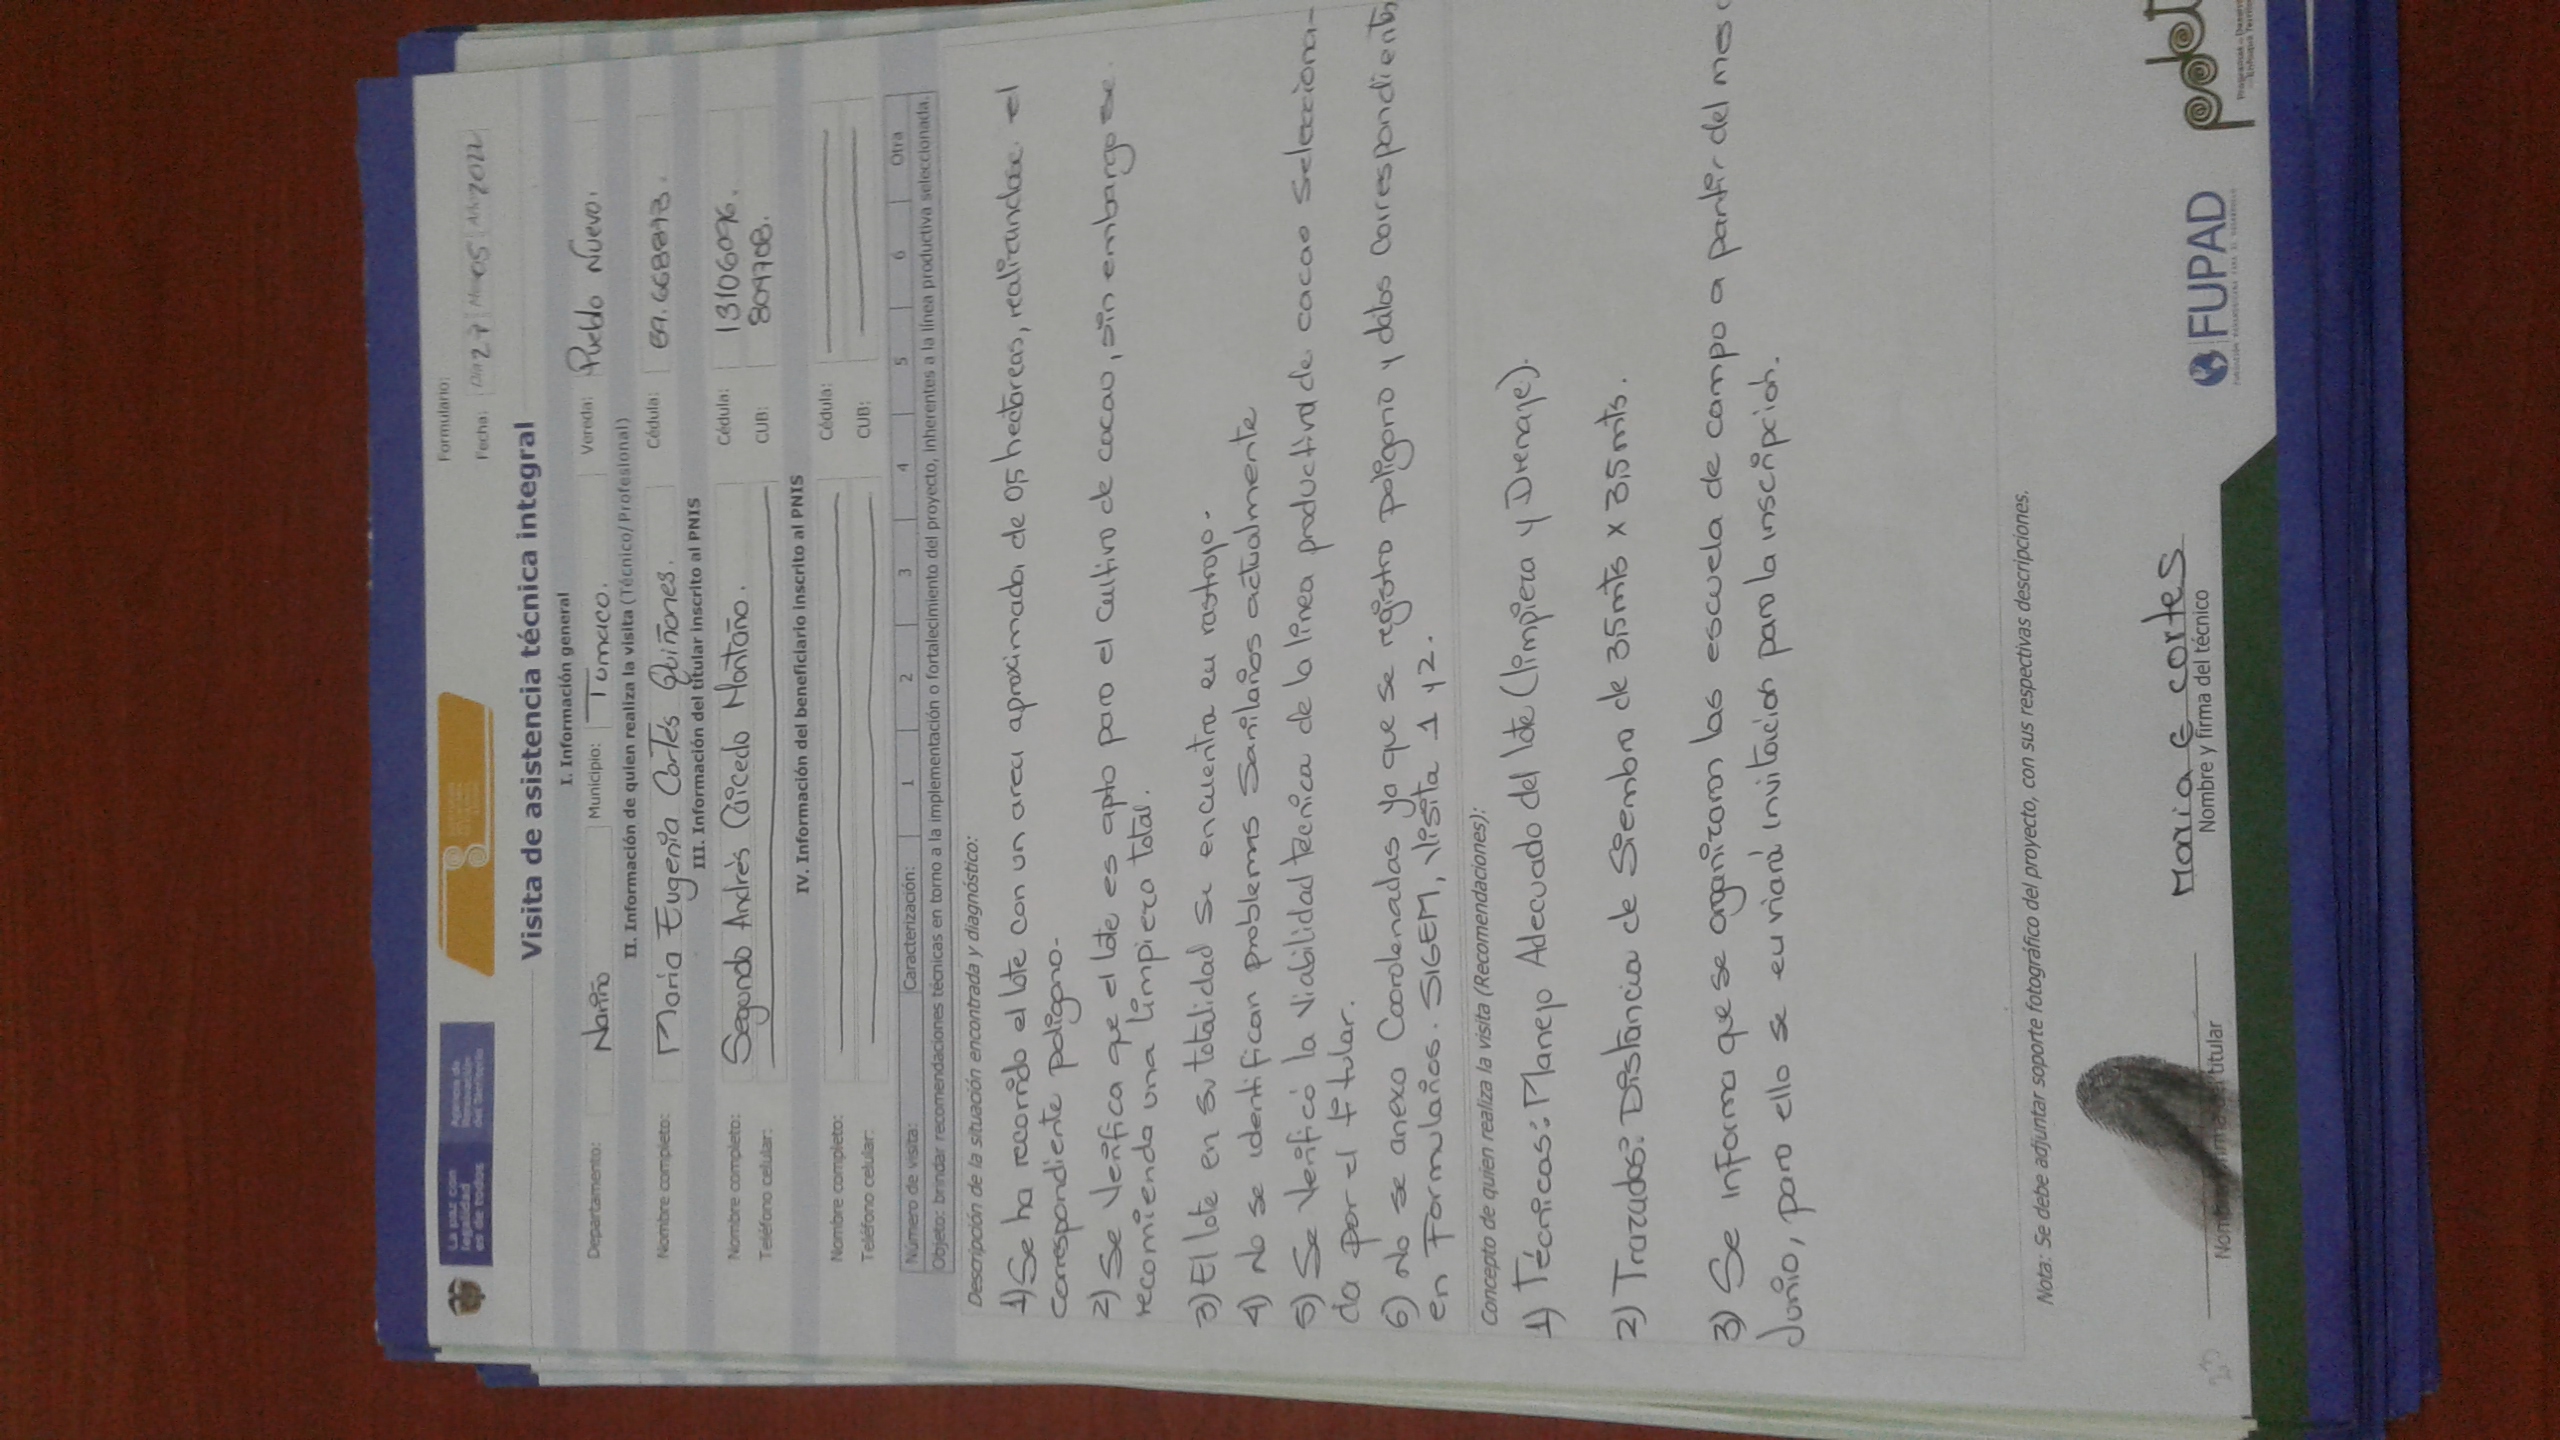 La paz con
legalidad
es de todos
Agencia de
Renovación
del Territorio
Formulario:
Fecha: Día 27 Mes 05 Año 2022
Visita de asistencia técnica integral
I. Información general
Departamento: Nariño Municipio: Tumaco. Vereda: Pueblo Nuevo.
II. Información de quien realiza la visita (Técnico/Profesional)
Nombre completo: Maria Eugenia Cortés Quiñones. Cédula:
III. Información del titular inscrito al PNIS
Nombre completo: Segundo Andrés Caicedo Montaño. Cédula: 13106096.
Teléfono celular: CUB:
IV. Información del beneficiario inscrito al PNIS
Nombre completo: Cédula:
Teléfono celular: CUB:
Número de visita: Caracterización: 1 2 3 4 5 6 Otra
Objeto: brindar recomendaciones técnicas en torno a la implementación o fortalecimiento del proyecto, inherentes a la línea productiva seleccionada.
Descripción de la situación encontrada y diagnóstico:
1) Se ha recorrido el lote con un area aproximada de 0,5 hectareas, realizandose el
correspondiente poligono.
2) Se verifica que el lote es apto para el cultivo de cacao, sin embargo se
recomienda una limpieza total.
3) El lote en su totalidad se encuentra en rastrojo.
4) No se identifican problemas Sanitarios actualmente
5) Se verificó la viabilidad tecnica de la linea productiva de cacao selecciona-
da por el titular.
6) No se anexa Coordenadas ya que se registro poligono y datos correspondientes
en Formularios. SIGEM, visita 1 y 2.
Concepto de quien realiza la visita (Recomendaciones):
1) Técnicas: Manejo Adecuado del lote (limpieza y Drenaje).
2) Trazados: Distancia de Siembra de 3.5 mts x 3.5 mts.
3) Se informa que se organizaran las escuela de campo a partir del mes
Junio, para ello se enviará invitación para la inscripción.
Nota: Se debe adjuntar soporte fotográfico del proyecto, con sus respectivas descripciones.
Maria E cortes
titular Nombre y firma del técnico
FUPAD
pdet